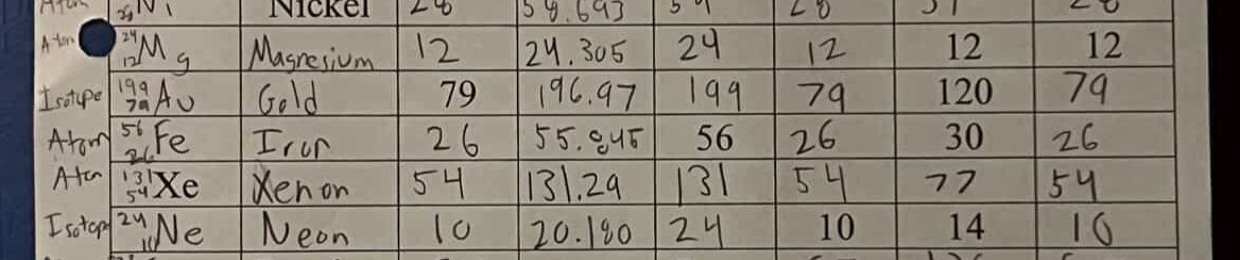 Atom 28 Ni Nickel 28 58.693 59 28 31 28
Atom 24 12 Mg Magnesium 12 24.305 24 12 12 12
Isotope 199 79 Au Gold 79 196.97 199 79 120 79
Atom 56 26 Fe Iron 26 55.845 56 26 30 26
Atom 131 54 Xe Xenon 54 131.29 131 54 77 54
Isotope 24 10 Ne Neon 10 20.180 24 10 14 10